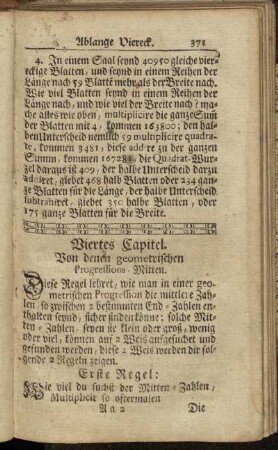 Ablange Viereck. 371
4. In einem Saal seynd 40950 gleiche vier-
eckige Blatten, und seynd in einem Reihen der
Länge nach 59 Blatte mehr als der Breite nach.
Wie viel Blatten seynd in einem Reihen der
Länge nach, und wie viel der Breite nach? ma-
che alles wie oben, multiplicire die ganze Sum̃
der Blatten mit 4, kommen 163800; den hal-
ben Unterscheid nemlich 59 multiplicire quadra-
te, kommen 3481, diese addire zu der ganzen
Summ, kommen 167281, die Quadrat-Wur-
zel daraus ist 409, der halbe Unterscheid darzu
addiret, giebet 468 halb Blatten oder 234 gan-
ze Blatten für die Länge, der halbe Unterscheid
subtrahiret, giebet 350 halbe Blatten, oder
175 ganze Blatten für die Breite.
Viertes Capitel.
Von denen geometrischen
Progressions-Mitten.
Diese Regel lehret, wie man in einer geo-
metrischen Progression die mittlere Zah-
len, so zwischen 2 bestimmten End-Zahlen ent-
halten seynd, sicher finden könne: solche Mit-
ten-Zahlen, seyen sie klein oder groß, wenig
oder viel, können auf 2 Weis aufgesuchet und
gefunden werden, diese 2 Weis werden dir fol-
gende 2 Regeln zeigen.
Erste Regel:
Wie viel du suchst der Mitten-Zahlen,
Multiplicir so oftermalen
A a 2 Die